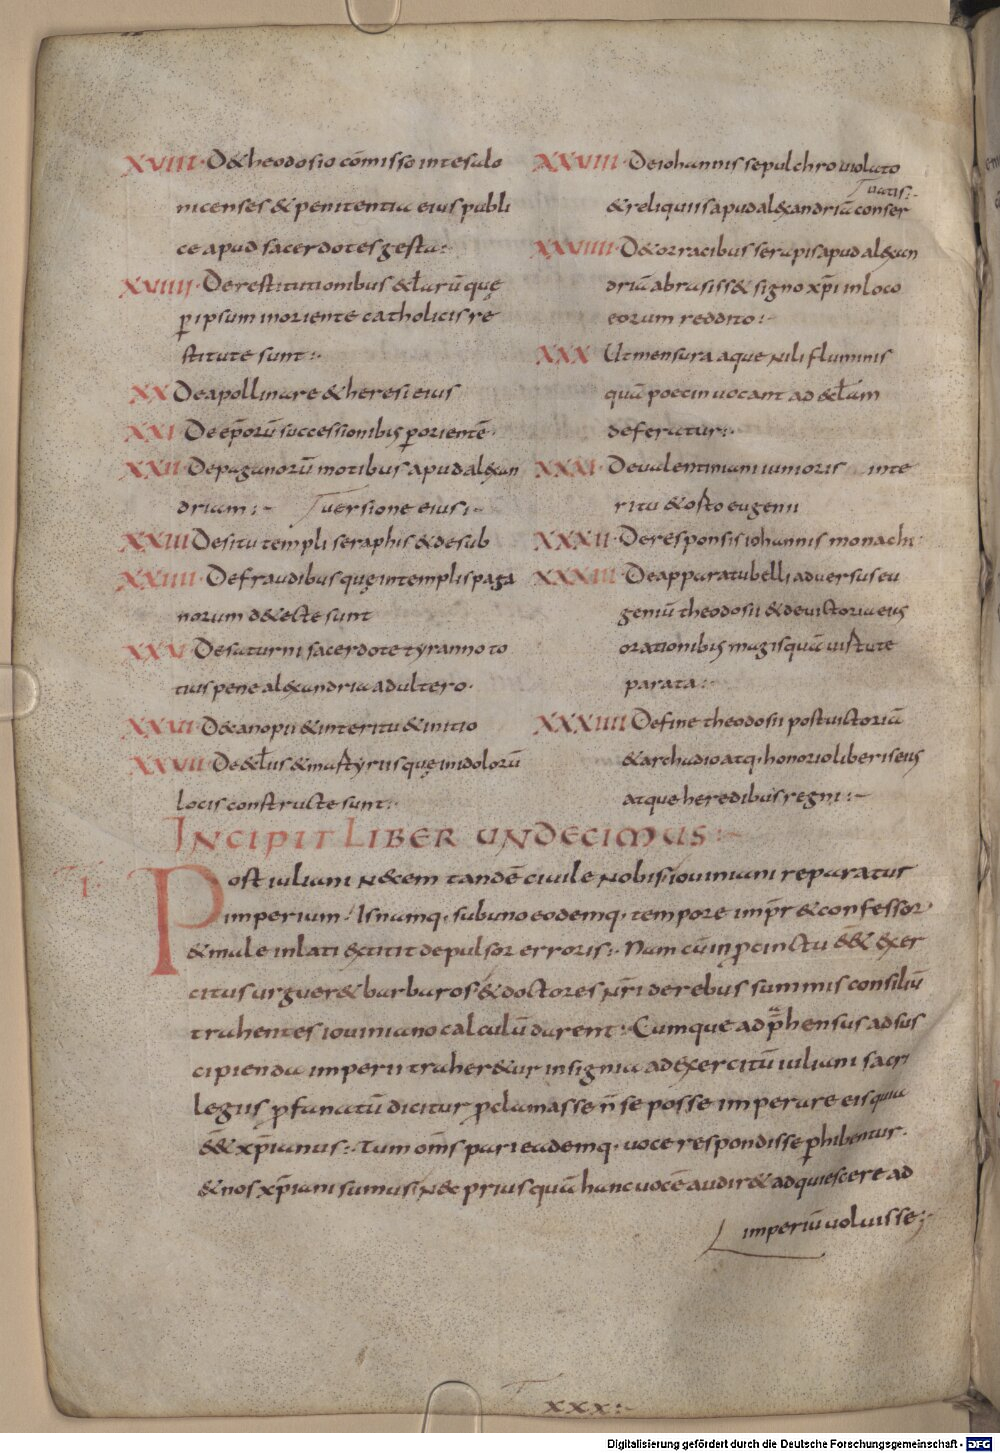 XVIII· D& heodosio cōmisso in tesalo
nicenses & penitentia eius publi
ce apud sacerdotes gesta:·
XVIIII· De restitutionibus &ctarū quę
p ipsum in oriente catholicis re
stitute sunt:·
XX De apollinare & heresi eius
XXI· De epōrū successionibꝫ p orientē·
XXII· De paganorū motibus apud al&xan
driam:~
XXIII De situ templi seraphis & de sub
uersione eius:~
XXIIII· De fraudibus quę in templis paga
norum d&ecte sunt
XXV De saturni sacerdote tyranno to
tius pene al&xandria adultero·
XXVI· D& canopii & interitu & initio
XXVII· De &cƚus & martyriis quę in idolorū
locis constructe sunt:·
XXVIII· De iohannis sepulchro uiolato
& reliquiis apud al&xandriā conser
uatis:~
XXVIIII· D& orracibus serapis apud al&xan
driā abrasis s& signo xp̄i in loco
eorum reddito:~
XXX Ut mensura aque nili fluminis
quā poecin uocant ad &cƚam
deferatur:·
XXXI· De ualentiniani iunioris inte
ritu & osto eugenii
XXXII· De responsis iohannis monachi·
XXXIII· De apparatu belli aduersus eu
geniū theodosii & de uictoria eiꝰ
orationibꝫ magis quā uirtute
parata:·
XXXIIII De fine theodosii post uictoriā
& archadio atq· honorio liberis eiꝰ
atque heredibus regni:~
INCIPIT LIBER UNDECIMUS:~
I· Post iuliani n&cem tandē ciuile nobis iouiniani reparatur
imperium· Is namq· sub uno eodemq· tempore impr̄ & confessor·
& male inlati extitit depulsor erroris:· Nam cū in pcinctu ē& exer
citus urguer& barbaros & doctores nr̄i de rebus summis consiliū
trahentes iouiniano calculū darent:· Cumque adp̄hensus ad sus
cipienda imperii traher&ur insignia ad exercitū iuliani sacri
legiis pfanatū dicitur pclamasse n̄ se posse imperare eis quia
ē& xp̄ianus:· Tum om̄s pari eademq· uoce respondisse phibentur·
& nos xp̄iani sumus· N&c prius quā hanc uocē audir& adquiescere ad
imperiū uoluisse;~
XXX:~
Digitalisierung gefördert durch die Deutsche Forschungsgemeinschaft - DFG